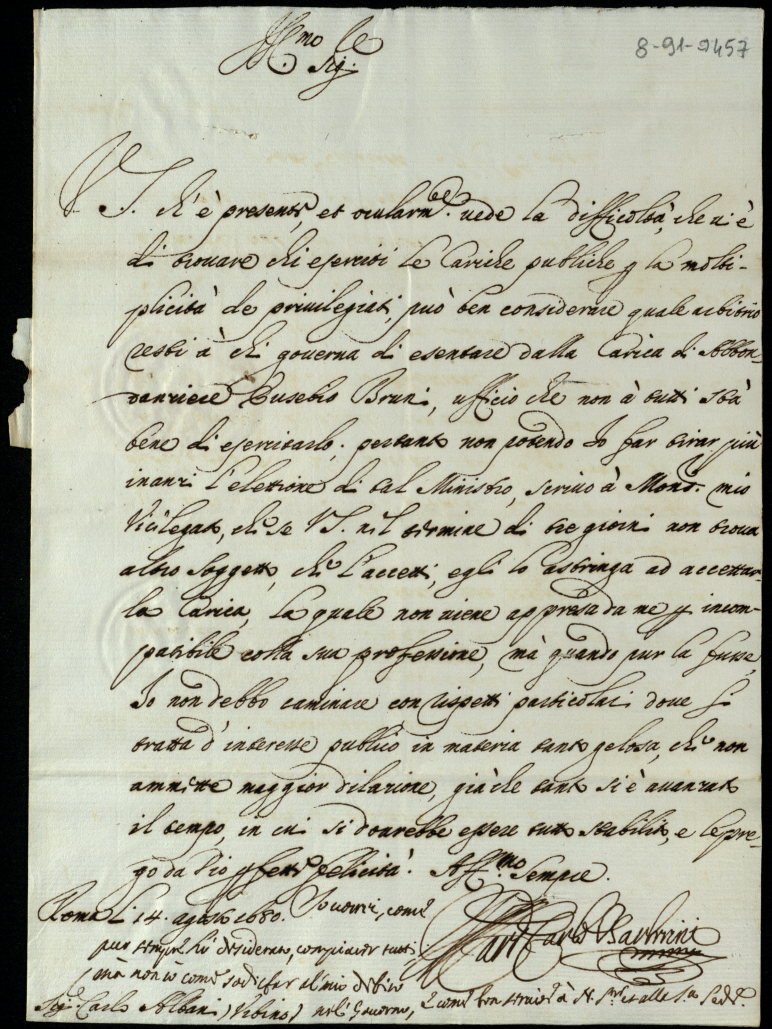 Ill.mo Sig.re
8-91-2457
V. S. ch'è presente, et ocularm.te vede la difficoltà, che vi è
di trovare chi eserciti le Cariche publiche p la molti-
plicità de privilegiati, può ben considerare quale arbitrio
resti à chi governa di esentare dalla Carica di Abbon-
danziere Eusebio Bruni, ufficio che non à tutti stà
bene di esercitarlo. pertanto non potendo Io far tirar più
inanzi l'elettione di tal Ministro, scrivo à Mons.r mio
Vicelegato, che se V S. nel termine di tre giorni non trova
altro soggetto, che l'accetti, egli lo astringa ad accettar
la Carica, la quale non viene appresa da me p incom-
patibile colla sua professione, mà quando pur la fusse,
Io non debbo caminare con rispetti particolari dove si
tratta d'interesse publico in materia tanto gelosa, che non
ammette maggior dilazione, già che tanto si è avanzato
il tempo, in cui si dovrebbe essere tutto stabilito, e le pre-
go da Dio p fetta felicità. Aff.mo Sempre.
Roma li 14. agosto 1680. Io vorrei, come
pur sempre hò desiderato, compiacer tutti
mà non sò come sodisfar al mio debito
Carlo Card. Barberini
Sig.r Carlo Albani (Urbino) nel Governo, e come ben servire à N. S.re et alla S.ta Sede.